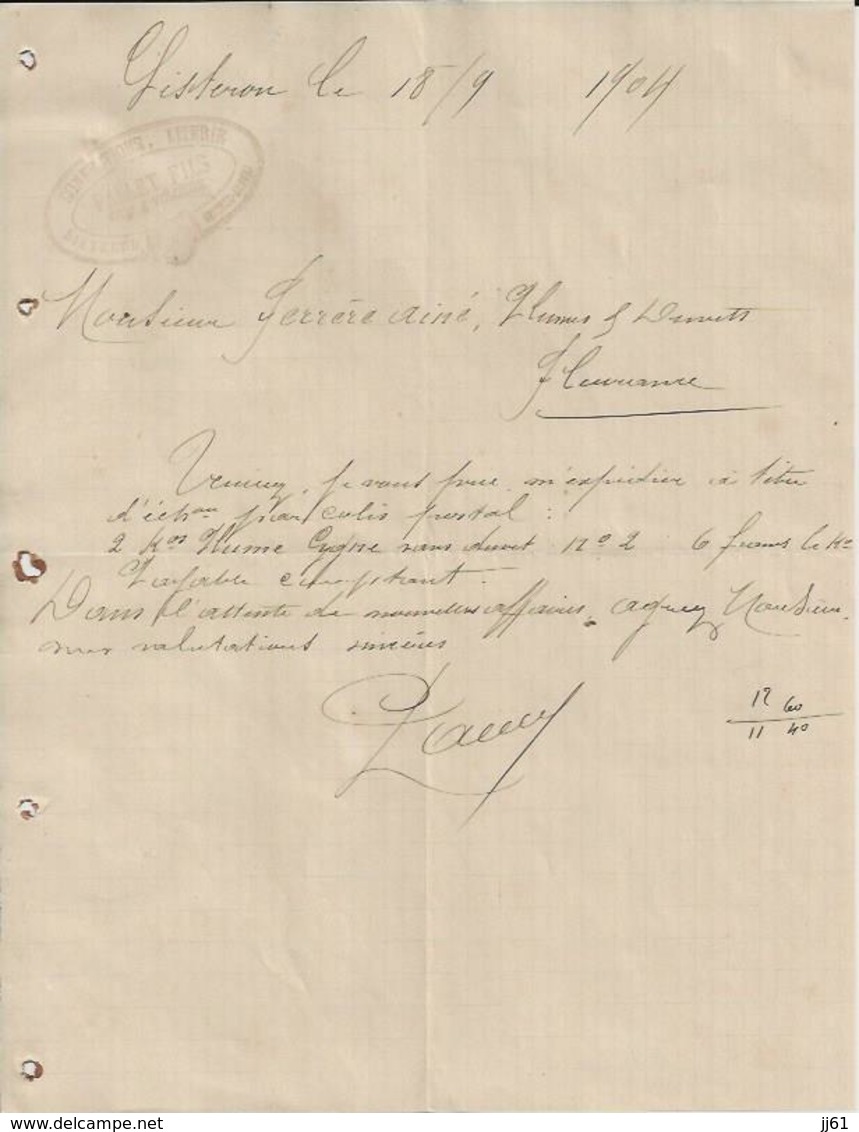 Sisteron le 18/9 1904
LITERIE
FILS
Monsieur Ferrère ainé, Plumes & Duvets
Fleurance
Veuillez, je vous prie, m'expédier à titre
d'échon par colis postal :
2 Kos Plume Cygne sans duvet no 2 6 francs le Ko
Payable comptant.
Dans l'attente de nouvelles affaires, agréez Monsieur
mes salutations sincères
12 60
11 40
jj61
delcampe.net